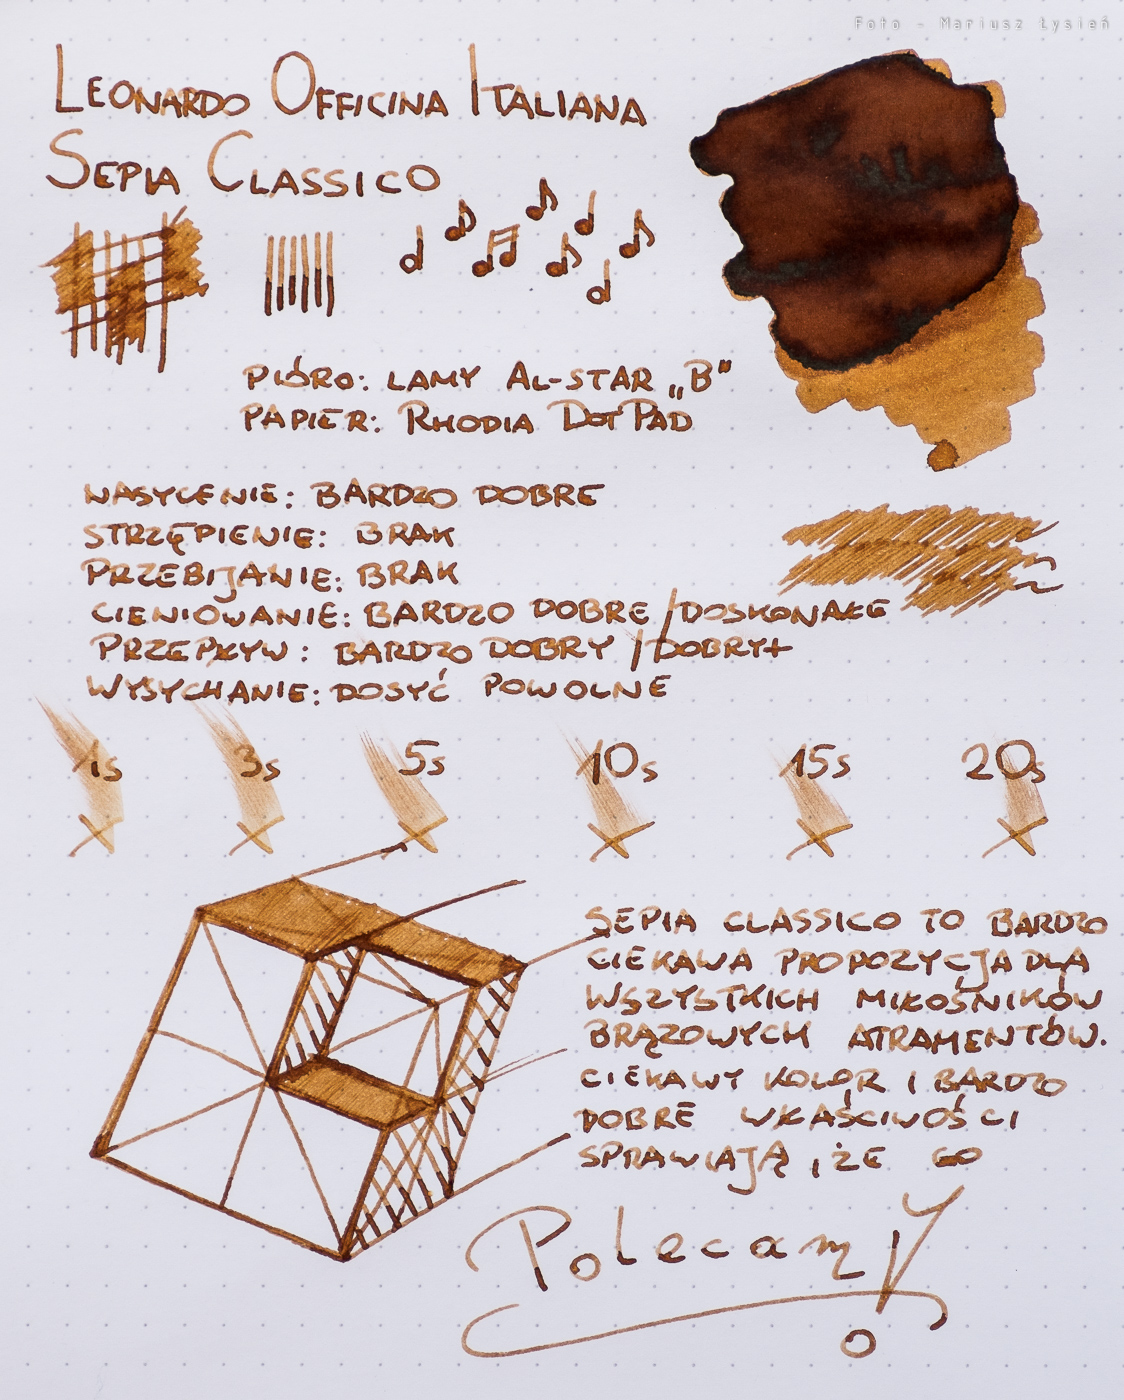 Foto - Mariusz Łysień
LEONARDO OFFICINA ITALIANA
SEPIA CLASSICO
PIÓRO: LAMY AL-STAR „B"
PAPIER: RHODIA DOTPAD
NASYCENIE: BARDZO DOBRE
STRZĘPIENIE: BRAK
PRZEBIJANIE: BRAK
CIENIOWANIE: BARDZO DOBRE/DOSKONAŁE
PRZEPŁYW: BARDZO DOBRY/DOBRY+
WYSYCHANIE: DOSYĆ POWOLNE
1s 3s 5s 10s 15s 20s
SEPIA CLASSICO TO BARDZO
CIEKAWA PROPOZYCJA DLA
WSZYSTKICH MIŁOŚNIKÓW
BRĄZOWYCH ATRAMENTÓW.
CIEKAWY KOLOR I BARDZO
DOBRE WŁAŚCIWOŚCI
SPRAWIAJĄ, ŻE GO
Polecam!